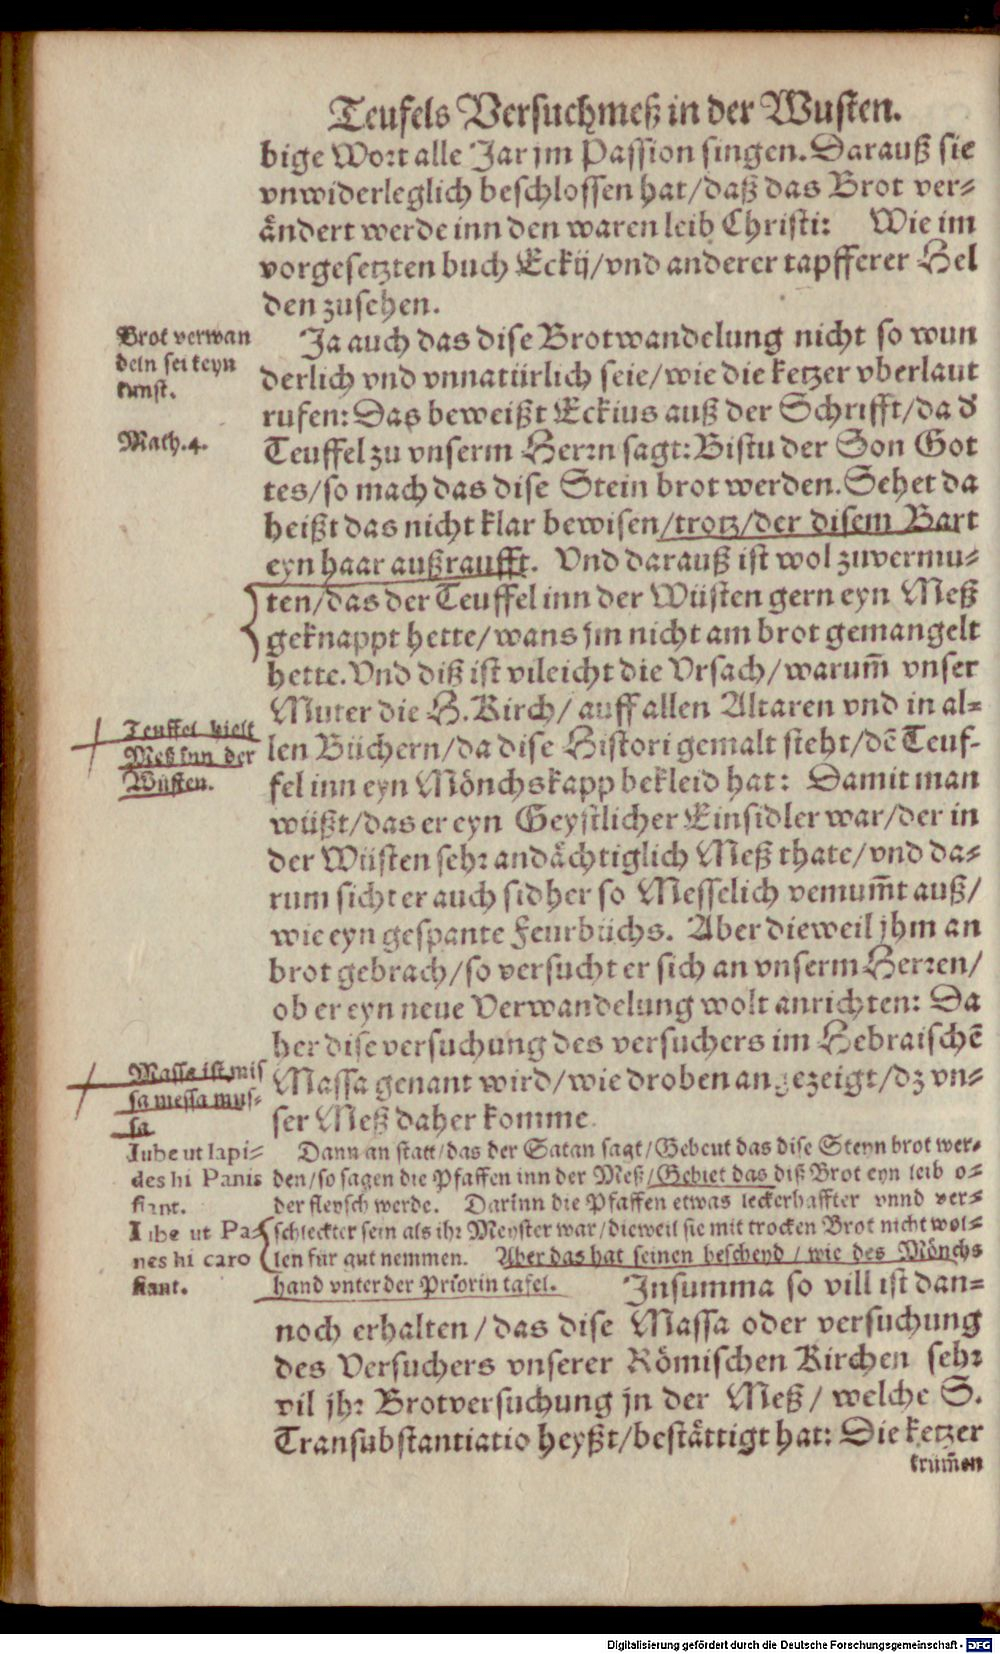 Teufels Versuchmeß in der Wusten.
bige Wort alle Jar jm Passion singen. Darauß sie
vnwiderleglich beschlossen hat/daß das Brot ver⸗
ändert werde inn den waren leib Christi: Wie im
vorgesetzten buch Eckij/vnd anderer tapfferer Hel
den zusehen.
Brot verwan
deln sei keyn
kunst.
Ja auch das dise Brotwandelung nicht so wun
derlich vnd vnnatürlich seie/wie die ketzer vberlaut
rufen: Das beweißt Eckius auß der Schrifft/da d̕
Math.4.
Teuffel zu vnserm Herrn sagt: Bistu der Son Got
tes/so mach das dise Stein brot werden. Sehet da
heißt das nicht klar bewisen/trotz/der disem Bart
eyn haar außraufft. Vnd darauß ist wol zuvermu⸗
ten/das der Teuffel inn der Wüsten gern eyn Meß
geknappt hette/wans jm nicht am brot gemangelt
hette. Vnd diß ist vileicht die Vrsach/warum̃ vnser
Muter die H. Kirch/ auff allen Altaren vnd in al⸗
Teuffel hielt
Meß inn der
Wüsten.
len Büchern/da dise Histori gemalt steht/dẽ Teuf⸗
fel inn eyn Mönchskapp bekleid hat: Damit man
wüßt/das er eyn Geystlicher Einsidler war/der in
der Wüsten sehr andächtiglich Meß thate/vnd da⸗
rum sicht er auch sidher so Messelich vemum̃t auß/
wie eyn gespante Feurbüchs. Aber dieweil jhm an
brot gebrach/so versucht er sich an vnserm Herren/
ob er eyn neue Verwandelung wolt anrichten: Da
her dise versuchung des versuchers im Hebraischẽ
Massa ist mis
sa messa mus⸗
sa
Massa genant wird/wie droben angezeigt/dz vn⸗
ser Meß daher komme.
Iube ut lapi⸗
des hi Panis
fiant.
Iube ut Pa⸗
nes hi caro
fiant.
Dann an statt/das der Satan sagt/Gebeut das dise Steyn brot wer⸗
den/so sagen die Pfaffen inn der Meß/Gebiet das diß Brot eyn leib o⸗
der fleysch werde. Darinn die Pfaffen etwas leckerhaffter vnnd ver⸗
schleckter sein als ihr Meyster war/dieweil sie mit trocken Brot nicht wol⸗
len für gut nemmen. Aber das hat seinen bescheyd/wie des Mönchs
hand vnter der Priorin tafel. Insumma so vill ist dan⸗
noch erhalten/das dise Massa oder versuchung
des Versuchers vnserer Römischen Kirchen sehr
vil jhr Brotversuchung jn der Meß/ welche S.
Transubstantiatio heyßt/bestättigt hat: Die ketzer
krüm̃en
Digitalisierung gefördert durch die Deutsche Forschungsgemeinschaft - DFG